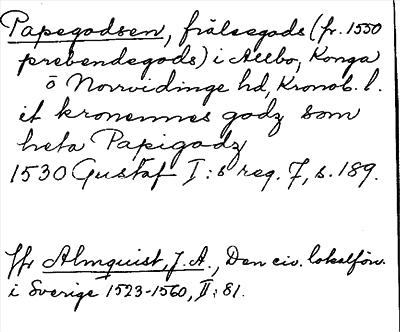 Papegodsen, frälsegods (fr. 1550
prebendegods) i Allbo, Konga
o Norrvidinge hd, Kronob. l.
it kronennes godz som
heta Papigodz
1530 Gustaf I:s reg. 7, s. 189.
Jfr Almquist, J. A., Den civ. lokalförv.
i Sverige 1523-1560, II: 81.